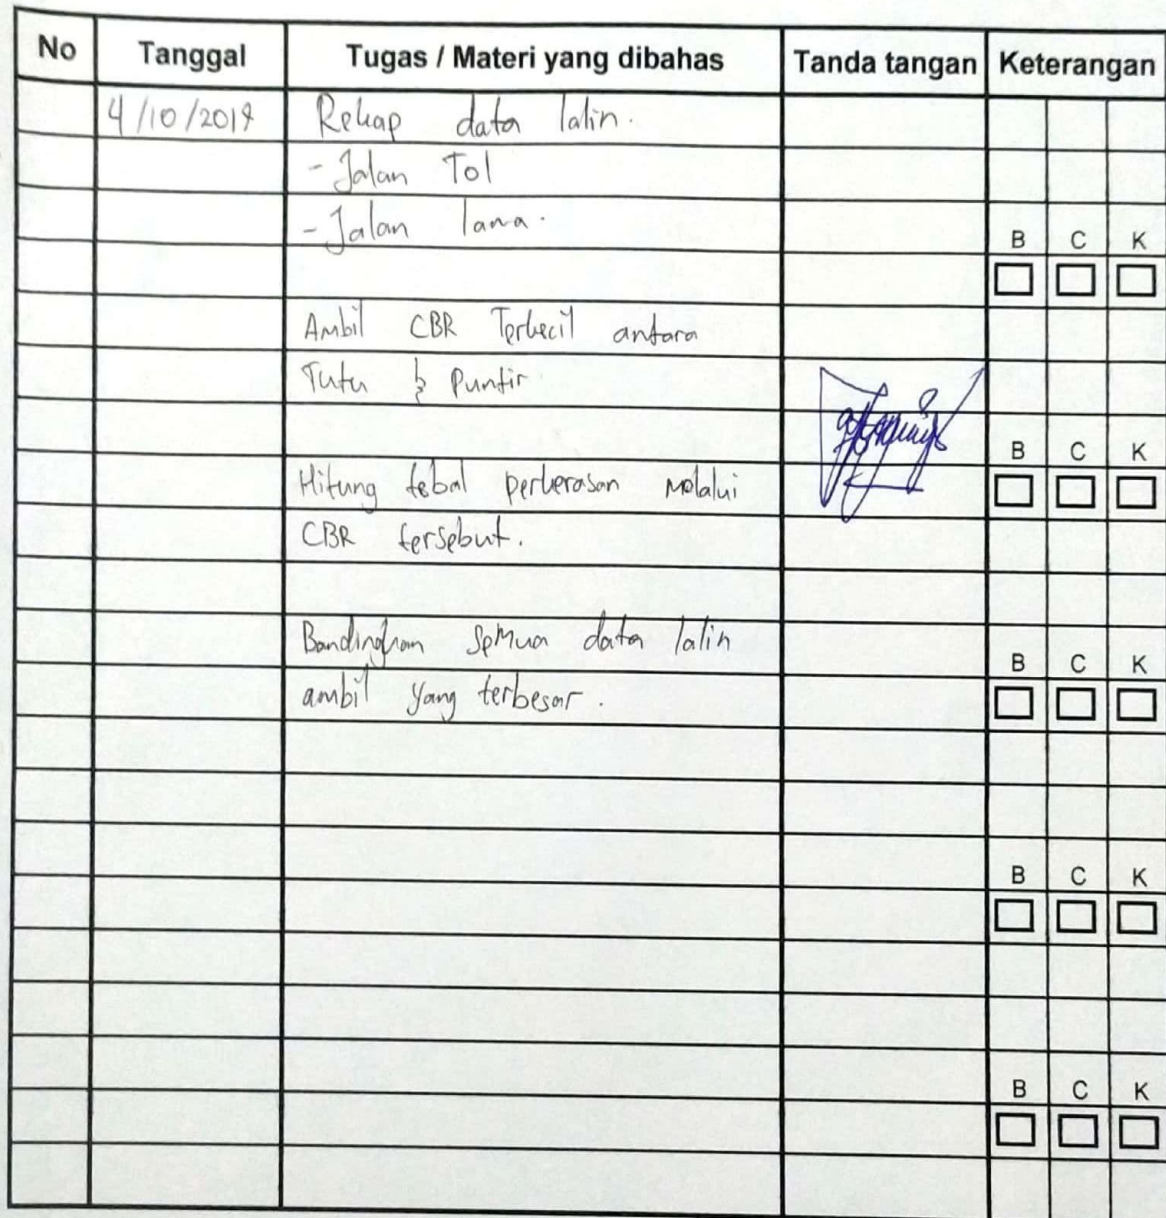 No Tanggal Tugas / Materi yang dibahas Tanda tangan Keterangan
4/10/2019 Rekap data lalin.
- Jalan Tol
- Jalan lama.
B C K
Ambil CBR Terkecil antara
Tutu & Puntir
B C K
Hitung tebal perkerasan melalui
CBR tersebut.
Bandingkan semua data lalin
B C K
ambil yang terbesar.
B C K
B C K